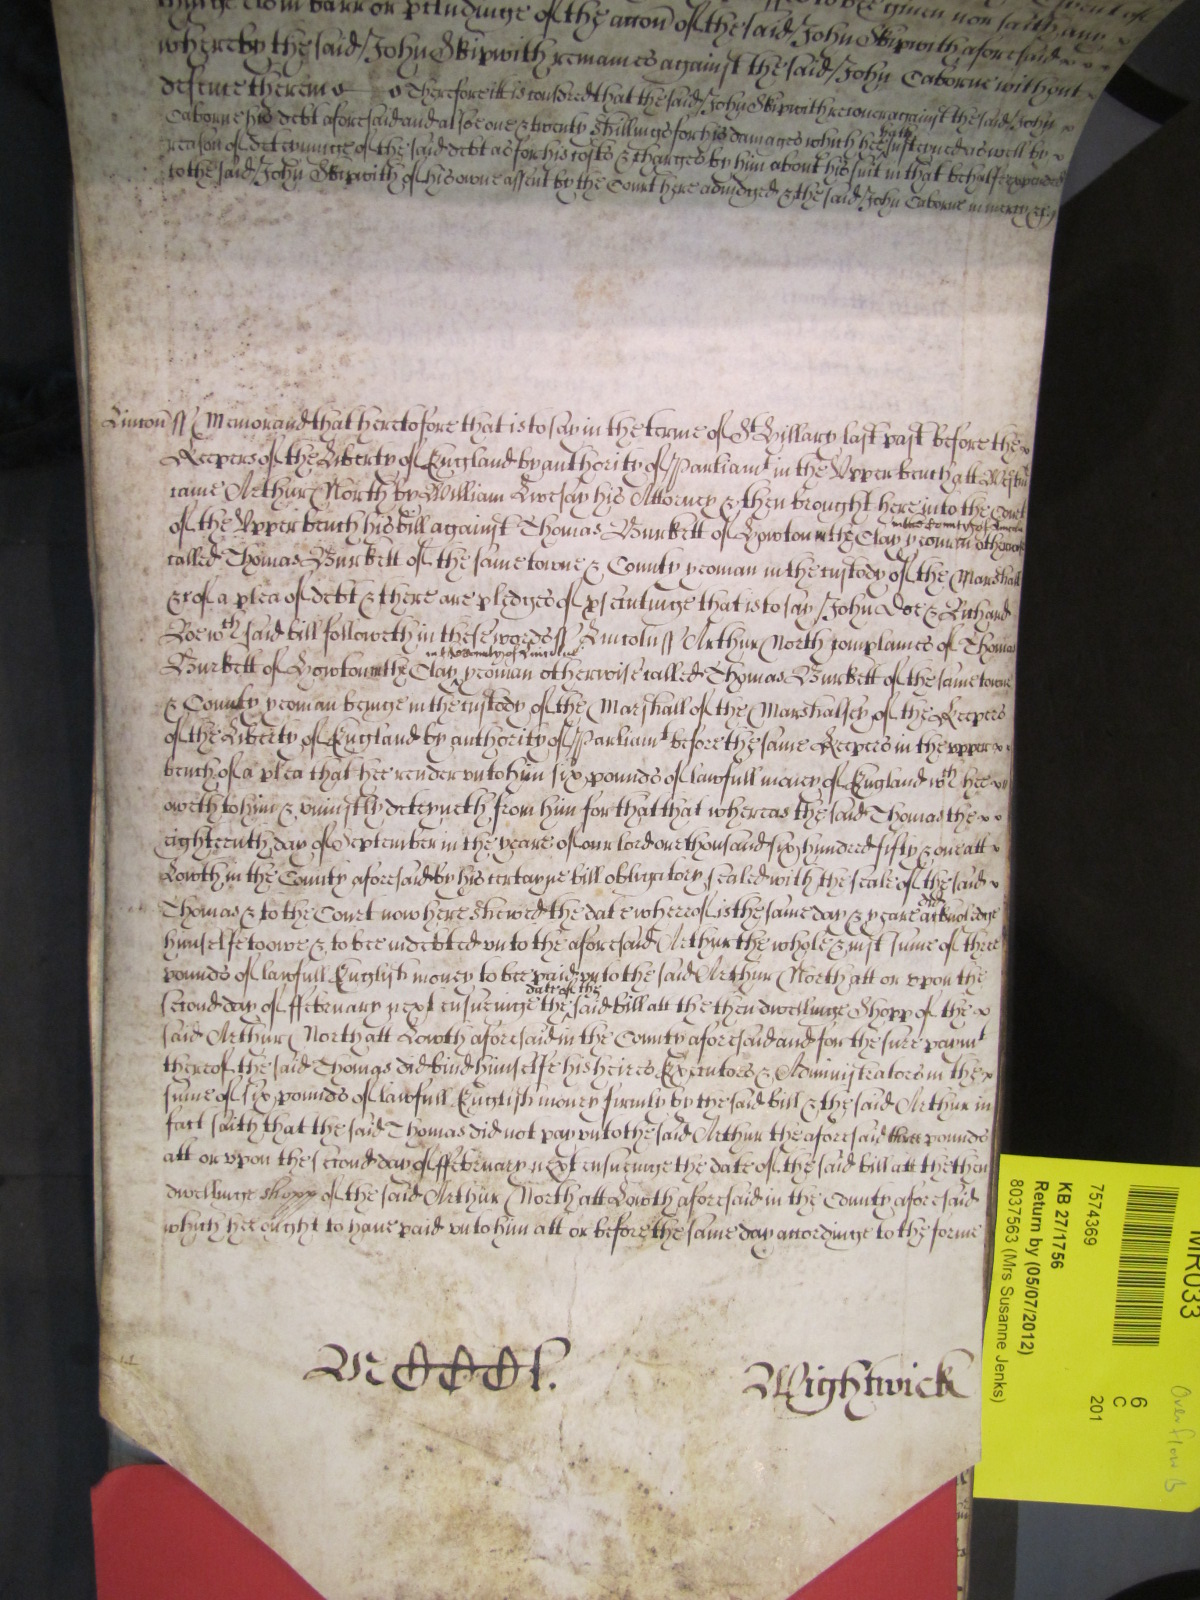 barr or pleadinge of the accon of the said John Skipwith aforesaid
whereby the said John Skipwith remaines against the said John Caborne without
defence therein Therefore itt is considred that the said John Skipwith recover against the said John
Caborne his debt aforesaid and alsoe one & twenty shillings for his damages which hee hath susteyned as well by
reason of deteyninge of the said debt as for his costs & charges by him about his suit in that behalfe expended
to the said John Skipwith of his owne assent by the Court here adiudged & the said John Caborne in mercy &c
Lincoln ss Memorand that heretofore that is to say in the terme of St Hillary last past before the
Keepers of the Liberty of England by authority of Parliamt in the Upper bench att Westm
came Arthur North by William Livesay his Attorney & then brought here into the Court
of the Upper bench his bill against Thomas Burkett of in the Clay in the County of Lincoln yeoman otherwise
called Thomas Burkett of the same towne & County yeoman in the custody of the Marshall
&c of a plea of debt & there are pledges of psecutinge that is to say John Doe & Richard
Roe wch said bill followeth in these words ss Lincoln ss Arthur North complaines of Thomas
Burkett of in the Clay in the County of Lincolne yeoman otherwise called Thomas Burkett of the same towne
& County yeoman beinge in the custody of the Marshall of the Marshalsey of the Keepers
of the Liberty of England by authority of Parliamt before the same Keepers in the upper
bench of a plea that hee render unto him six pounds of lawfull money of England wch hee
oweth to him & uniustly deteyneth from him for that that whereas the said Thomas the
eighteenth day of September in the yeare of our lord one thousand six hundred fifty & one att
Lowth in the County aforesaid by his certayne bill obligatory sealed with the seale of the said
Thomas & to the Court now here shewed the date whereof is the same day & yeare did acknoledge
himselfe to owe & to bee indebted unto the aforesaid Arthur the whole & iust sume of three
pounds of lawfull English money to bee paid unto the said Arthur North att or upon the
second day of ffebruary next ensueinge the date of the said bill att the then dwellinge Shopp of the
said Arthur North att Lowth aforesaid in the County aforesaid and for the sure paymt
thereof the said Thomas did bind himselfe his heires Executors & Administrators in the
sume of six pounds of lawfull English money firmly by the said bill & the said Arthur in
fact saith that the said Thomas did not pay unto the said Arthur the aforesaid three pounds
att or upon the second day of ffebruary next ensueinge the date of the said bill att the then
dwellinge shopp of the said Arthur North att Lowth aforesaid in the County aforesaid
which hee ought to have paid unto him att or before the same day accordinge to the forme
Wightwick
MR033
7574369
KB 27/1756
Return by (05/07/2012)
8037563 (Mrs Susanne Jenks)
6
C
201
Overflow B